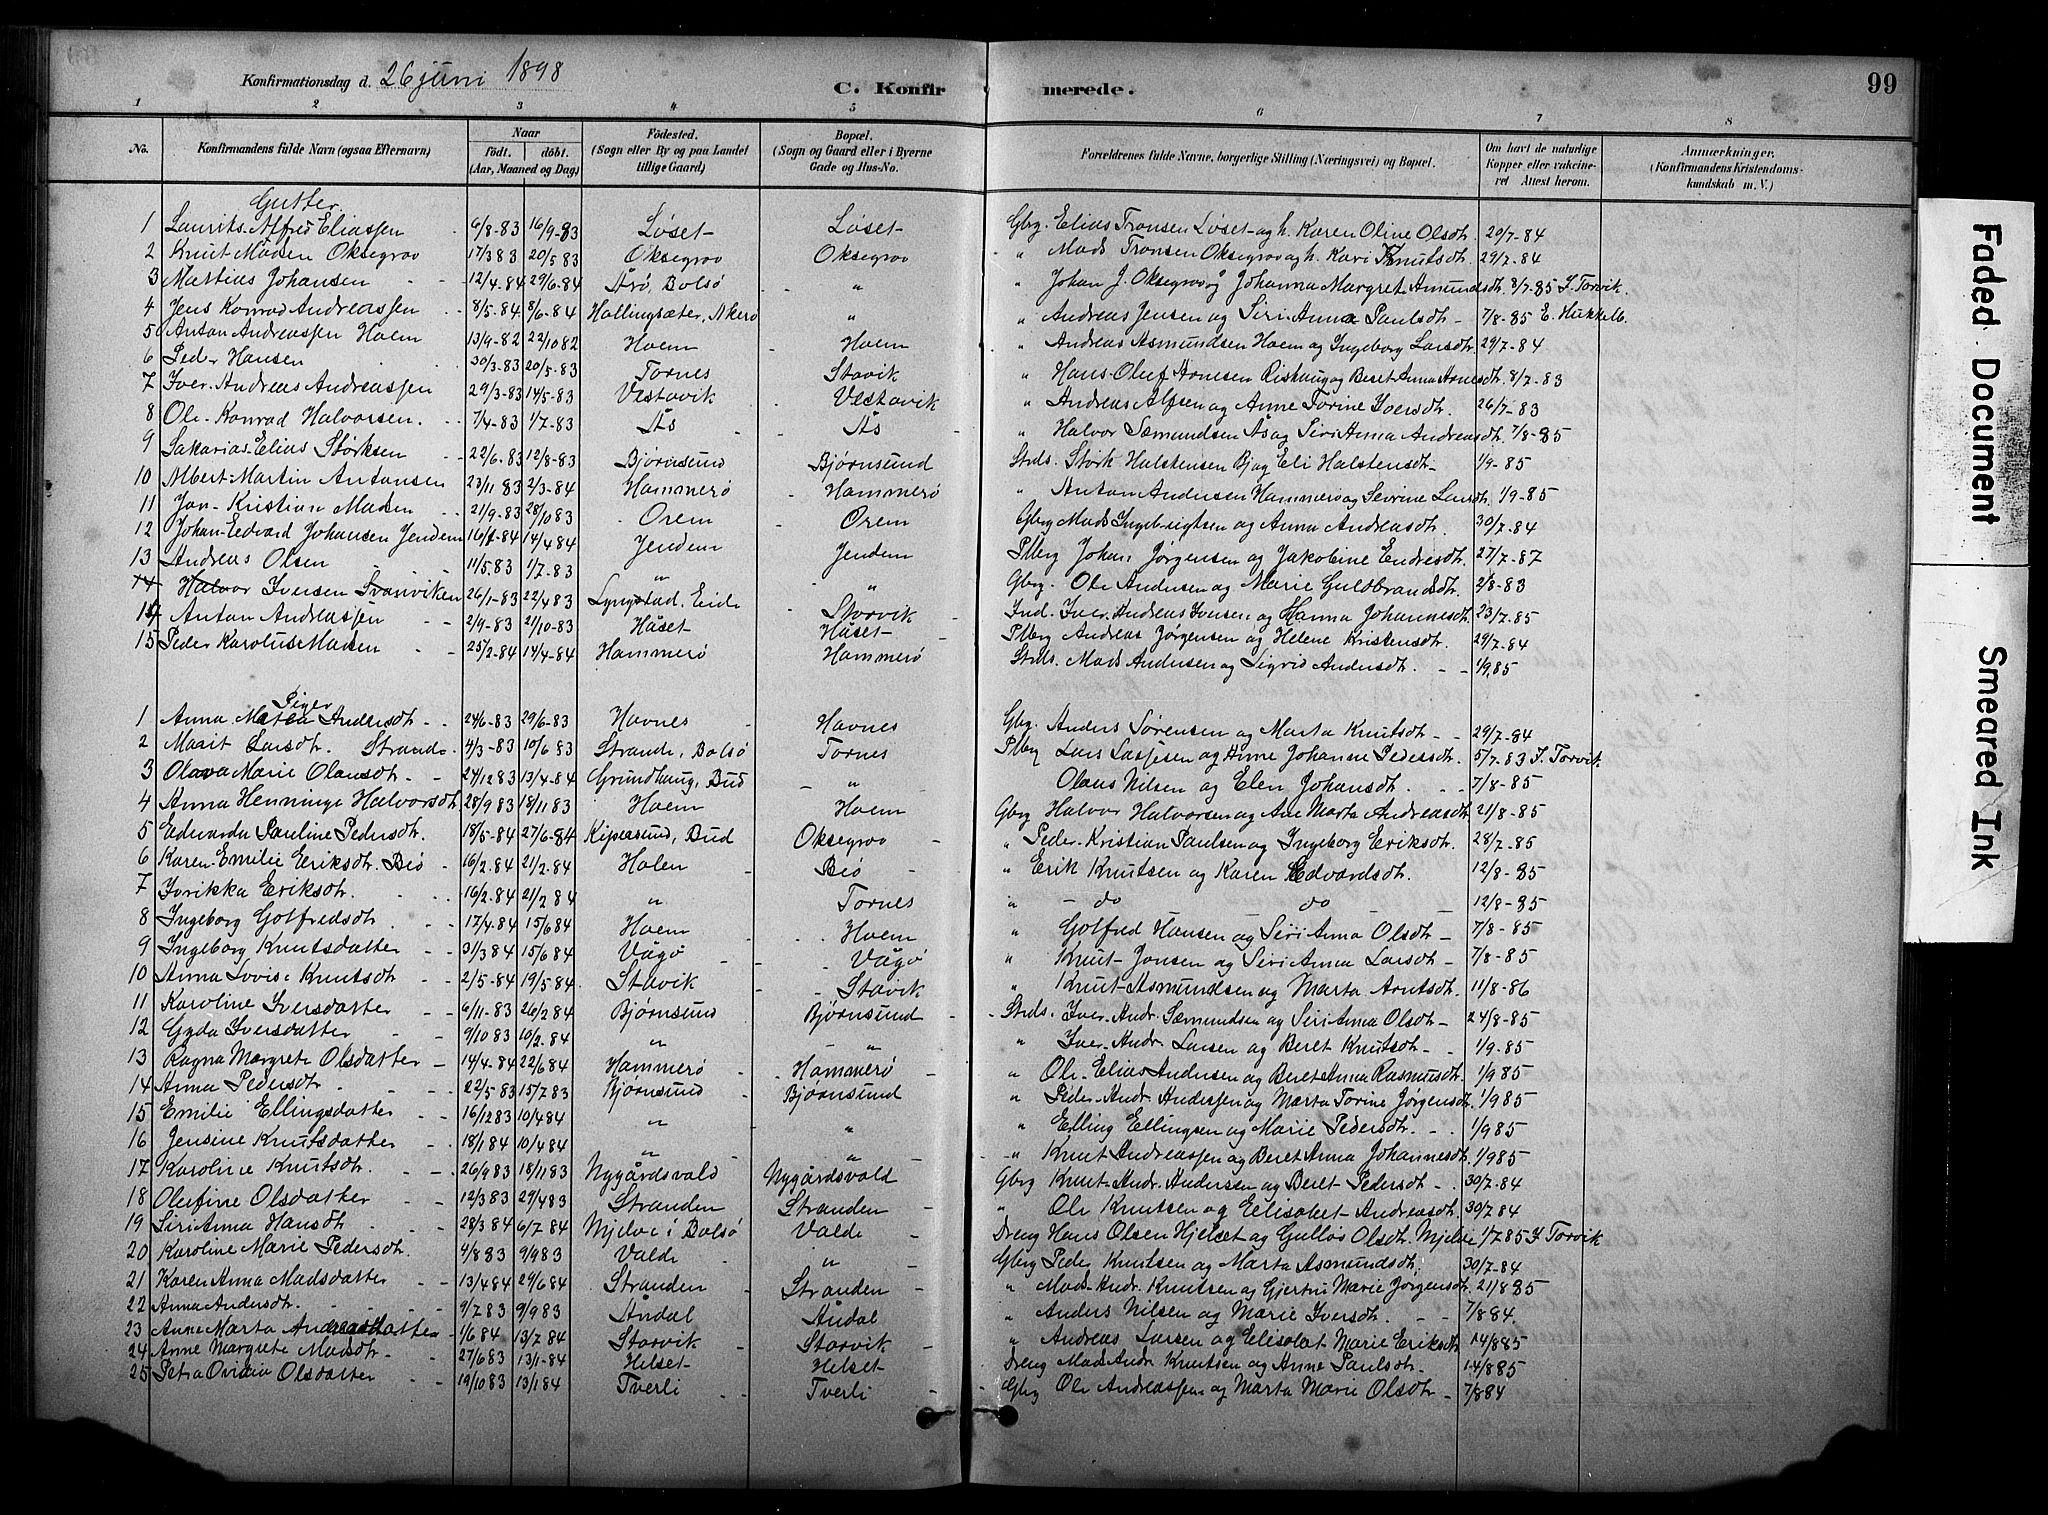 Konfirmationsdag d. 26 juni 1898
C. Konfirmerede.
99
1 2 3 4 5 6 7 8
No. Konfirmandens fulde Navn (ogsaa Efternavn) Naar födt. döbt. (Aar, Maaned og Dag) Födested. (Sogn eller By og paa Landet tillige Gaard) Bopæl. (Sogn og Gaard eller i Byerne Gade og Hus-No. Forældrenes fulde Navne, borgerlige Stilling (Næringsvei) og Bopæl. Om havt de naturlige Kopper eller vaccineret Attest herom. Anmærkninger. (Konfirmandens Kristendomskundskab m. V.)
Gutter.
1 Laurits Alfred Eliassen 6/8-83 16/9-83 Løset Løset Gbrg. Elias Tronsen Løset og h. Karen Oline Olsdtr. 29/7-84
2 Knut Madsen Oksegrov 17/3 83 20/5 83 Oksegrov Oksegrov " Mads Tronsen Oksegrov og h. Kari Knutsdtr. 29/7-84
3 Mathias Johansen 12/4-84 29/6-84 Årø, Bolsø " " Johan J. Oksegrov og Johanna Margret Amundsdtr. 3/7-85 J. Torvik.
4 Jens Konrad Andreassen 8/5-84 8/6-84 Hallingsæter, Akerø " " Andreas Jensen og Siri Anna Paulsdtr 7/8-85 E. Hukkelb.
5 Anton Andreassen Hoem 13/9-82 22/10 82 Hoem Hoem " Andreas Asmundsen Hoem og Ingeborg Larsdtr. 29/7-84
6 Peder Hansen 30/3-83 20/5-83 Tornes Stavik " Hans Oluf Arnesen Rishaug og Beret Anna Arnesdtr. 8/7-83
7 Iver Andreas Andreassen 29/3-83 14/5-83 Vestavik Vestavik " Andreas Alfsen og Anne Torine Iversdtr. 26/7-83
8 Ole Konrad Halvorsen 7/4-83 1/7-83 Ås Ås " Halvor Sæmundsen Ås og Siri Anna Andreasdtr. 7/8-85
9 Sakarias Elias Størksen 22/6-83 12/8-83 Bjørnsund Bjørnsund Strds. Størk Halstensen Bj og Eli Halstensdtr 1/9-85
10 Albert Martin Antonsen 23/11 83 2/3-84 Hammerø Hammerø " Anton Andersen Hammerø og Sevrine Larsdtr. 1/9-85
11 Jon Kristian Madsen 21/9-83 28/10 83 Orem Orem Gbrg Mads Ingebrigtsen og Anna Andreasdtr. 30/7-84
12 Johan Edvard Johansen Jendem 16/1-84 14/4-84 Jendem Jendem Plbrg Johan Jørgensen og Jakobine Endresdtr. 27/7-87
13 Andreas Olsen 11/5-83 1/7-83 " " Gbrg. Ole Andersen og Marie Guldbrandsdtr. 2/8-83
14 Halvor Iversen Svanviken 26/1-83 22/4 83 Lyngstad, Eide Storvik Ind. Iver Andreas Iversen og Hanna Johannesdtr. 23/7-85
14 Anton Andreassen 2/9-83 21/10-83 Håset Håset Plbrg Andreas Jørgensen og Helene Kristensdtr. 29/7-84
15 Peder Karolus Madsen 25/2-84 14/4-84 Hammerø Hammerø Strds. Mads Andersen og Sigrid Andersdtr. 1/9,85
Piger
1 Anna Matea Andersdtr 24/6-83 29/6-83 Havnes Havnes Gbrg. Anders Sørensen og Marta Knutsdtr 29/7-84
2 Marit Larsdtr. Strande 4/3-83 10/6 83 Strande, Bolsø Tornes Plbrg Lars Lassesen og Anne Johanne Pedersdtr. 5/7-83 J. Torvik.
3 Olava Marie Olausdtr 24/12 83 13/4-84 Grundhaug, Bud " Olaus Nilsen og Elen Johansdtr. 7/8-85
4 Anna Henninge Halvorsdtr 28/9 83 18/11 83 Hoem Hoem Gbrg Halvor Halvorsen og Ane Marta Andreasdtr 21/8-85
5 Edvarda Pauline Pedersdtr. 18/5-84 27/6-84 Kipersund, Bud Oksegrov " Peder Kristian Paulsen og Ingeborg Eriksdtr. 28/7-85
6 Karen Emilie Eriksdtr. Bio 16/2.84 21/2-84 Holen Bio " Erik Knutsen og Karen Edvardsdtr. 12/8-85
7 Fredrikka Eriksdtr. 16/2.84 21/2 84 " Tornes " do do 12/8-85
8 Ingeborg Gotfredsdtr 17/4 84 15/6 84 Hoem Hoem " Gotfred Hansen og Siri Anna Olsdtr 7/8-85
9 Ingeborg Knutsdatter 31/3 84 15/6 84 Vågø Vågø " Knut Jonsen og Siri Anna Larsdtr 7/8-85
10 Anna Lovise Knutsdtr 2/5-84 19/5-84 Stavik Stavik " Knut Asmundsen og Marta Arntsdtr. 11/8-86
11 Karoline Iversdatter 6/11-83 26/2 84 Bjørnsund Bjørnsund Strds. Iver Andr. Sæmundsen og Siri Anna Olsdtr 24/8-85
12 Gyda Iversdatter 9/10 83 10/2.84 " " " Iver Andr. Larsen og Beret Knutsdtr 1/9-85
13 Ragna Margrete Olsdatter 14/4-84 22/6 84 Hammerø Hammerø " Ole Elias Andersen og Beret Anna Rasmusdtr. 1/9 85
14 Anna Pedersdtr 22/5 83 15/7 83 Bjørnsund Bjørnsund " Peder Andr. Anderssen og Marta Torine Jørgensdtr. 1/9 85
15 Emilie Ellingsdatter 16/12 83 10/4 84 " " " Elling Ellingsen og Marie Pedersdtr. 1/9 85
16 Jensine Knutsdatter 18/1 84 10/4 84 " " " Knut Andreassen og Beret Anna Johannesdtr. 1/9 85
17 Karoline Knutsdtr. 26/9 83 18/11 83 Nygårdsvald Nygårdsvald Gbrg Knut Andr. Andersen og Beret Pedersdtr 30/7-84
18 Olufine Olsdatter 12/3 83 29/4 83 Stranden Stranden " Ole Knutsen og Elisabet Andreasdtr. 30/7 84
19 Siri Anna Hansdtr 28/3 84 6/7 84 Mjelve i Bolsø Valde Dreng Hans Olsen Hjelset og Gulløv Olsdtr. Mjelve 1/7 85 J Torvik
20 Karoline Marie Pedersdtr. 4/8 83 9/9 83 Valde " Gbrg Peder Knutsen og Marta Asmundsdtr. 30/7-84
21 Karen Anna Madsdatter 13/4 84 29/6 84 Stranden Stranden " Mads Andr. Knutsen og Gjertru Marie Jørgensdtr. 21/8 85
22 Anna Andersdtr. 9/7 83 9/9 83 Åndal Åndal " Anders Nilsen og Marie Iversdtr. 7/8 84.
23 Anne Marta Andreasdatter 1/6 84 13/7 84 Storvik Storvik " Andreas Larsen og Elisabet Marie Eriksdtr 14/8 85
24 Anne Margrete Madsdtr. 27/6 83 13/1-84 Helset Helset Dreng Mads Andr. Knutsen og Anne Paulsdtr. 14/8 85
25 Petra Ovidia Olsdatter 19/10 83 13/1 84 Tverli Tverli Gbrg Ole Andreassen og Marta Marie Olsdtr 7/8 84
Faded Document
Smeared Ink